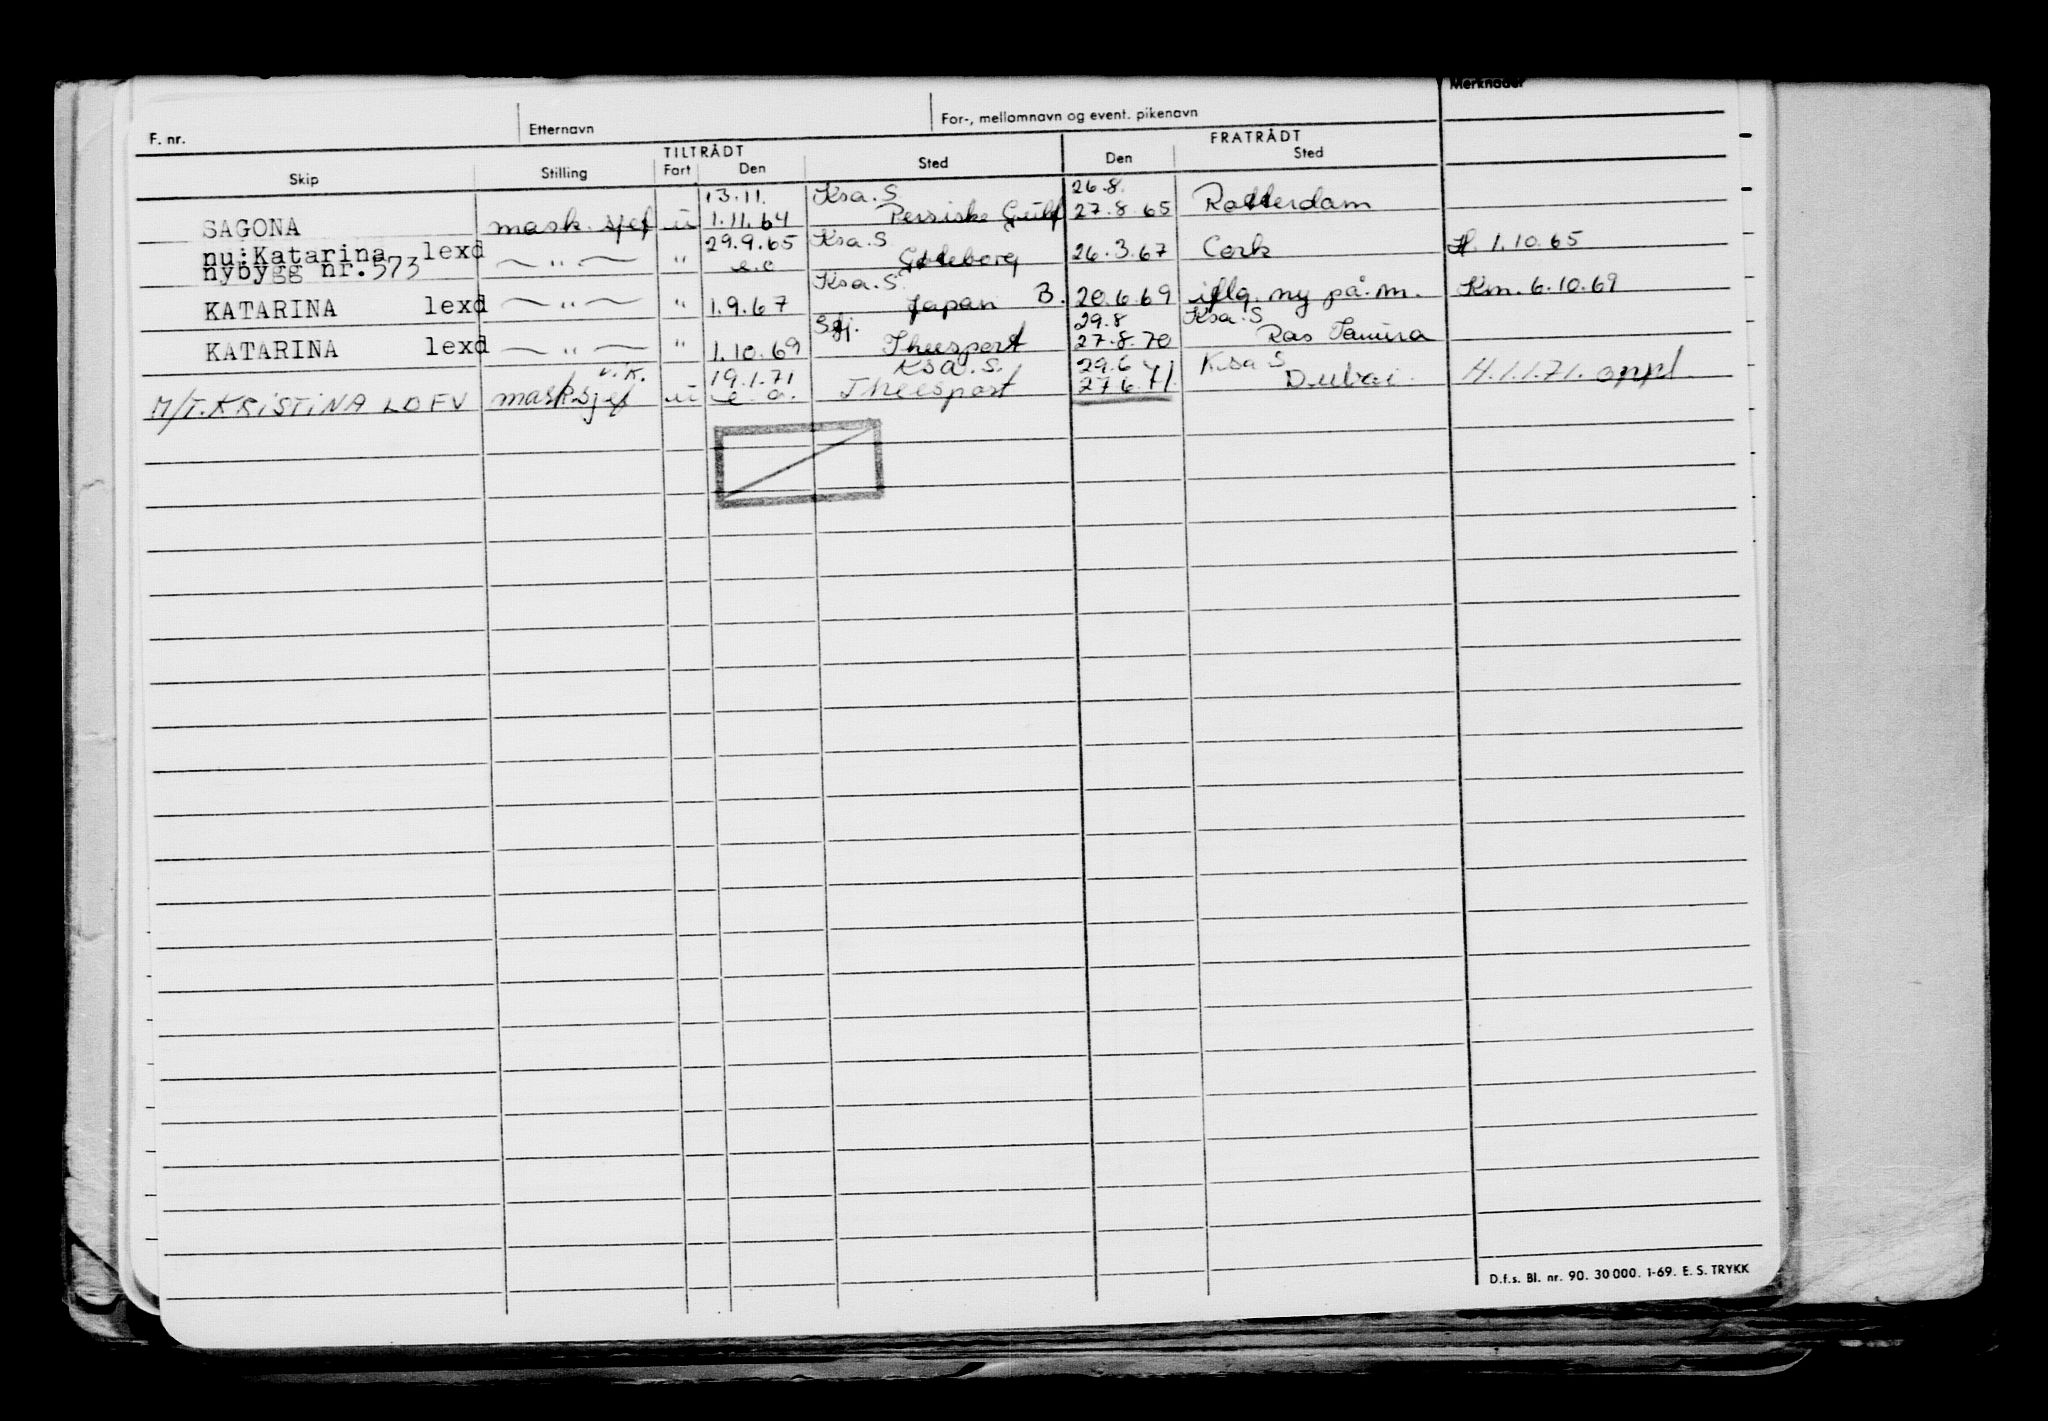 Merknader
F. nr. Etternavn For-, mellomnavn og event. pikenavn
TILTRÅDT FRATRÅDT
Skip Stilling Fart Den Sted Den Sted
13.11. Ksa. S 26.8.
SAGONA mask. sjef u 1.11.64 Persiske Gulf 27.8.65 Rotterdam
nu:Katarina lexd 29.9.65 Ksa. S
nybygg nr.573 — " — " e.o Gøteborg 26.3.67 Cork H. 1.10.65
Ksa. S
KATARINA lexd — " — " 1.9.67 Japan B. 20.6.69 iflg. ny på.m. Km. 6.10.69
Sfj. 29.8 Ksa. S
KATARINA lexd — " — " 1.10.69 Theesport 27.8.70 Ras Tanura
v.k. 19.1.71 Ksa. S. 29.6 Ksa S
M/T.KRISTINA LDFV mask.sjef u e.o. Theesport 27.6.71. Dubai. H.1.1.71. oppl.
D.f.s. Bl. nr. 90. 30 000. 1-69. E. S. TRYKK